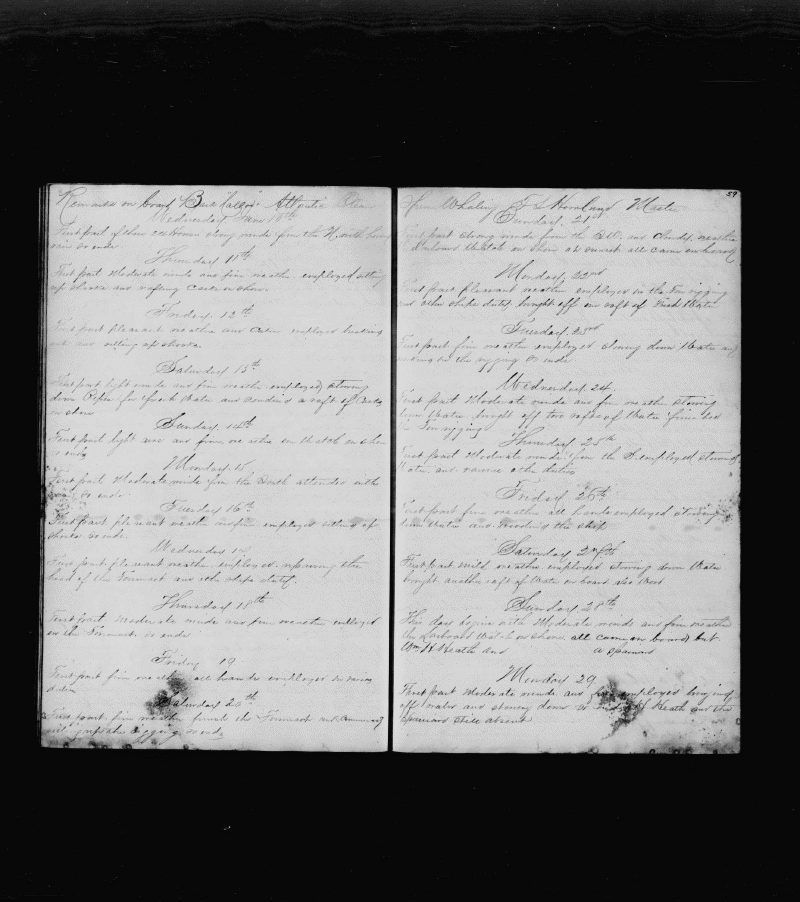 Remarks on board Bark Atlantic
Wednesday 10th
First part of these 24 Hours strong winds from the N with heavy
rain so ends
Thursday 11th
First part Moderate winds and fine weather employed setting
up shooks and rafting Casks on shore
Friday 12th
First part pleasant weather and Calm employed breaking
out and setting up shooks
Saturday 13th
First part light winds and fine weather employed stowing
down for fresh Water and sending a raft of Casks
on shore
Sunday 14th
First part light airs and fine weather one Watch on shore
so ends
Monday 15
First part Moderate winds from the South attended with
so ends
Tuesday 16th
First part pleasant weather employed setting up
shooks so ends
Wednesday
First part pleasant weather employed repairing the
head of the Foremast and other ships duty
Thursday 18th
First part Moderate winds and fine weather employed
on the Foremast so ends
Friday 19
First part fine weather all hands employed in various
duties
Saturday 20th
First part fine weather finished the Foremast and Commenced
the rigging so ends
59
Whaling Master
Sunday 21st
First part strong winds from the and Cloudy weather
Larboard Watch on shore at sunset all came on board
Monday 22nd
First part Pleasant weather employed in the Fore rigging
and other ships duty brought off one raft of Fresh Water
Tuesday 23rd
First part fine weather employed stowing down Water and
working in the rigging so ends
Wednesday 24
First part Moderate winds and fine weather stowing
down Water brought off two rafts of Water finished
Fore rigging
Thursday 25th
First part Moderate winds from the S employed stowing
Water and various other duties
Friday 26th
First part fine weather all hands employed stowing
down Water and wooding the ship
Saturday 27th
First part mild weather employed stowing down Water
brought another raft of Water on board also Wood
Sunday 28th
This day begins with Moderate winds and fine weather
the Larboard Watch on shore all came on board but
Wm H Heath and a Spaniard
Monday 29
First part Moderate winds and fine employed bringing
off water and stowing down so ends H Heath and the
Spaniard still absent